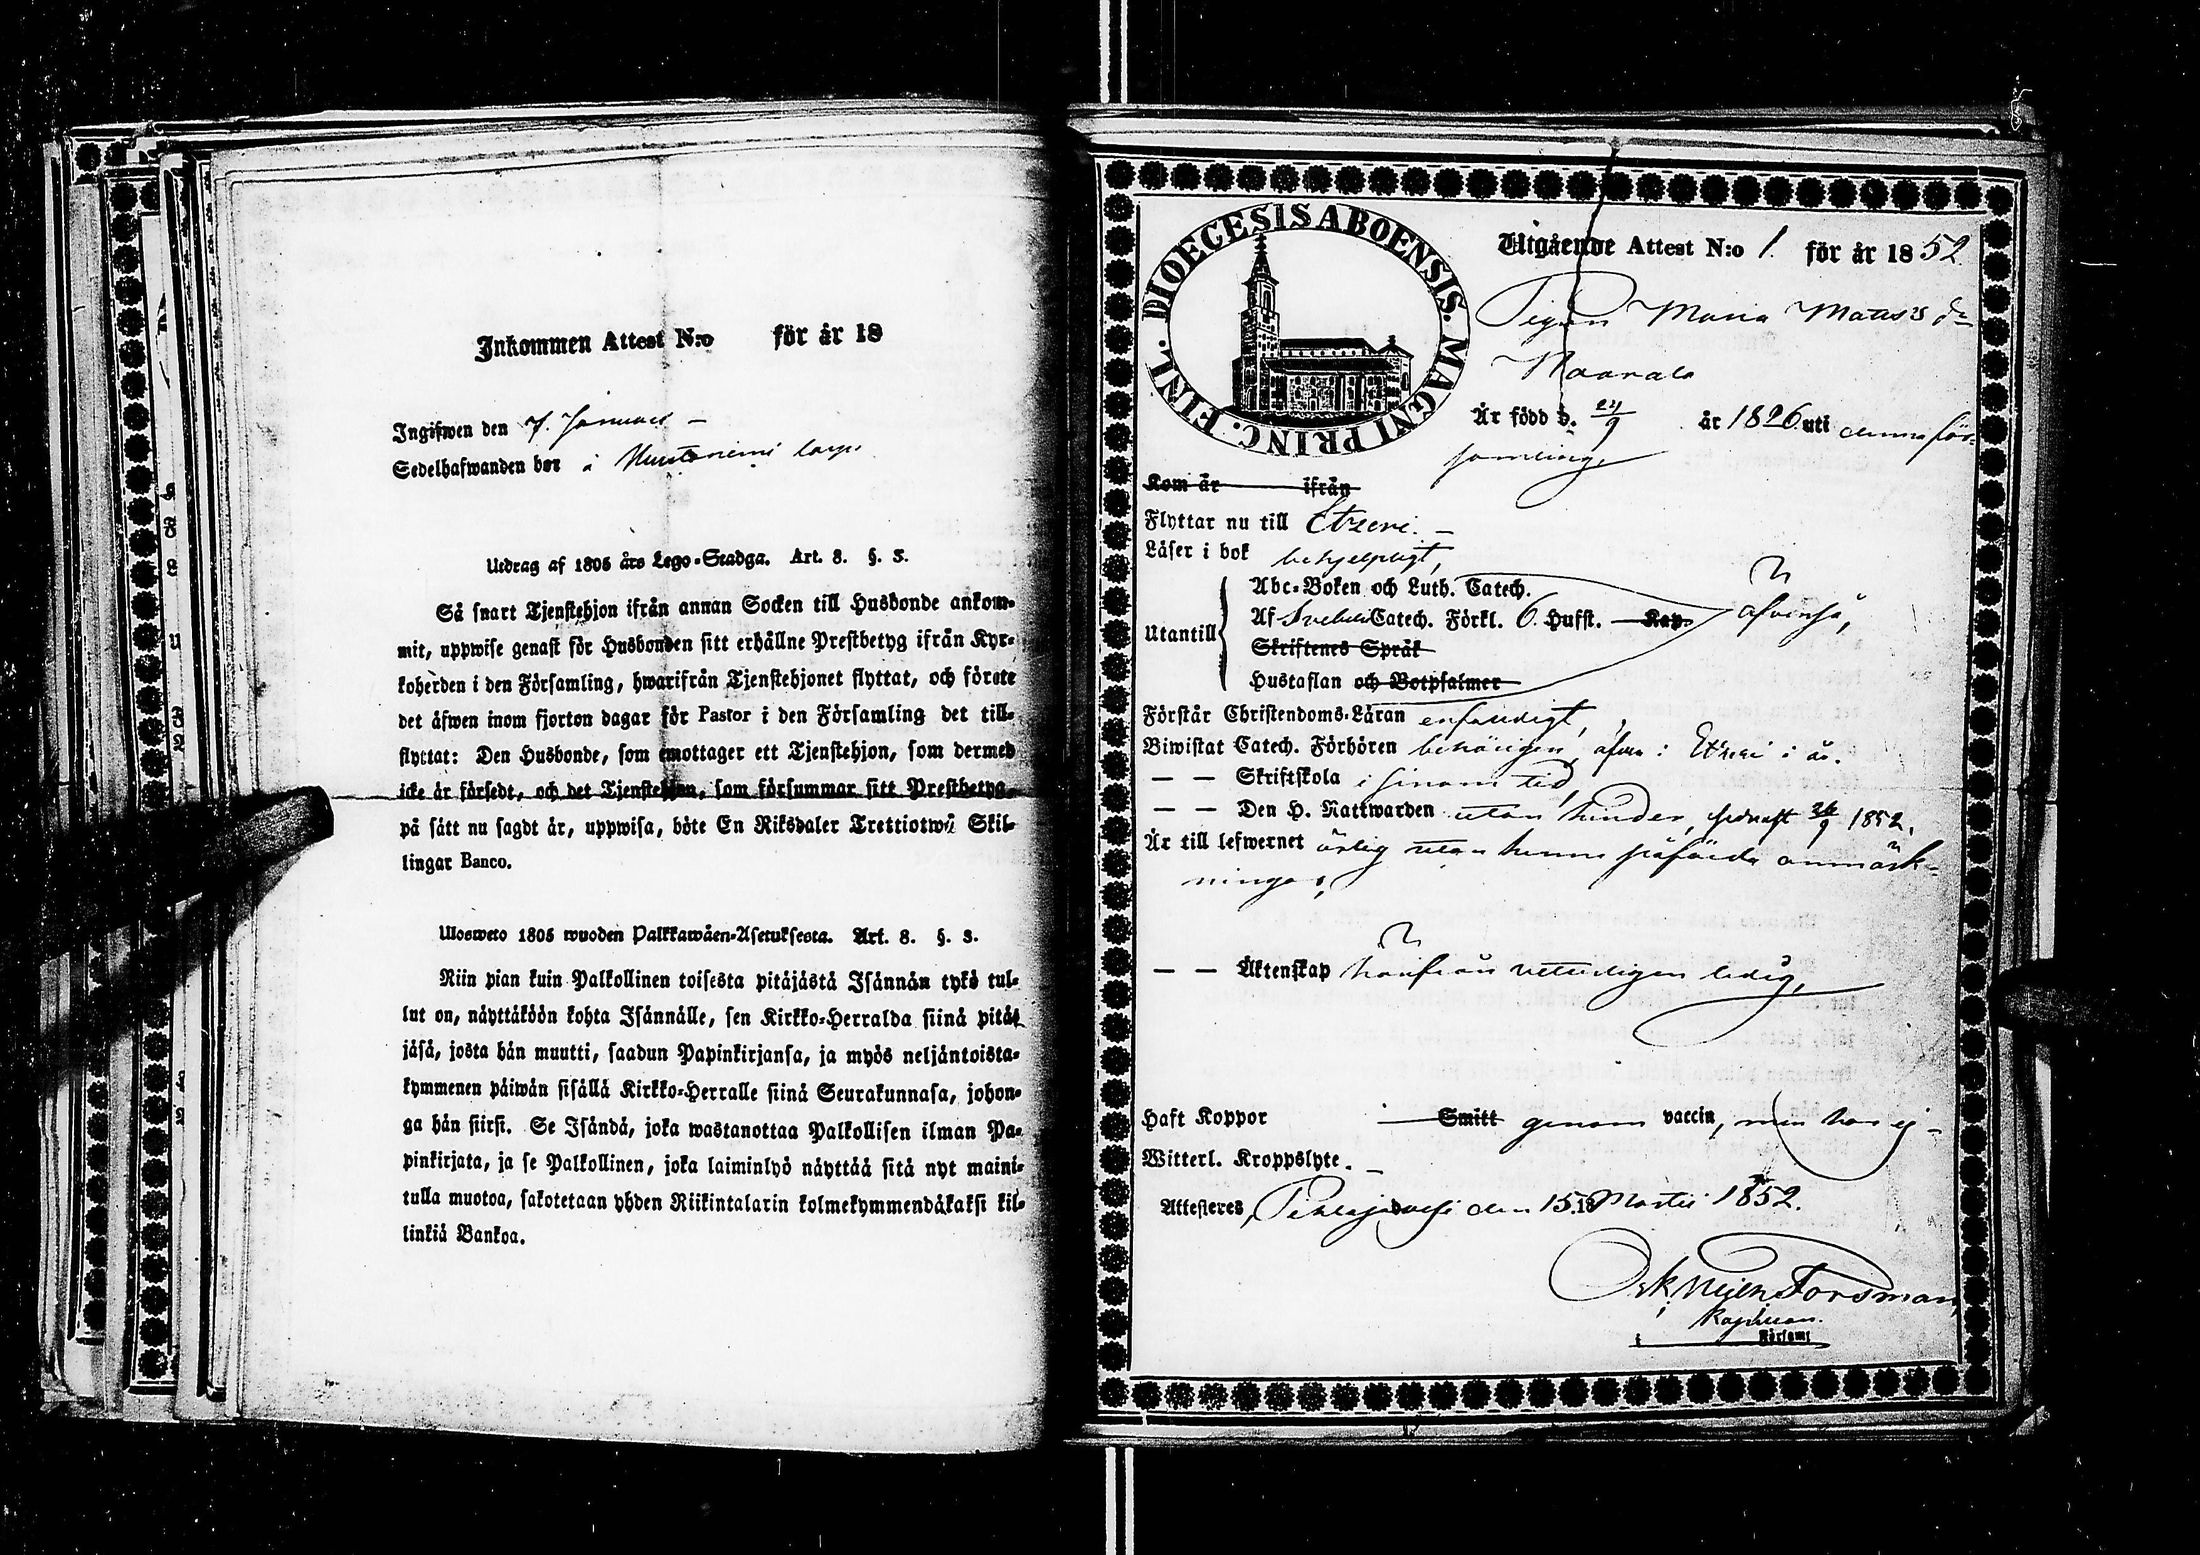 Inkommen Attest N:o för år 18
Ingifwen den 7. Januari –
Sedelhafwanden bor i
Utdrag af 1805 års Lego-Stadga. Art. 8. §. 3.
Så snart Tjenstehjon ifrån annan Socken till Husbonde ankom-
mit, uppwise genast för Husbonden sitt erhållne Prestbetyg ifrån Kyr-
koherden i den Församling, hwarifrån Tjenstehjonet flyttat, och förete
det äfwen inom fjorton dagar för Pastor i den Församling det till-
flyttat: Den Husbonde, som emottager ett Tjenstehjon, som dermed
icke är försedt, och det Tjenstehjon, som försummar sitt Prestbetyg,
på sätt nu sagdt är, uppwisa, böte En Riksdaler Trettiotwå Skil-
lingar Banco.
Ulosweto 1805 wuoden Palkkawäen-Asetuksesta. Art. 8. §. 3.
Niin pian kuin Palkollinen toisesta pitäjästä Isännän tykö tul-
lut on, näyttäköön kohta Isännälle, sen Kirkko-Herralda siinä pitä-
jäsä, josta hän muutti, saadun Papinkirjansa, ja myös neljäntoista-
kymmenen päiwän sisällä Kirkko-Herralle siinä Seurakunnasa, johon-
ga hän siirsi. Se Isändä, joka wastanottaa Palkollisen ilman Pa-
pinkirjata, ja se Palkollinen, joka laiminlyö näyttää sitä nyt maini-
tulla muotoa, sakotetaan yhden Riikintalarin kolmekymmendäkaksi kil-
linkiä Bankoa.
DIOECESIS ABOENSIS. MAGNI PRINC. FINL.
Utgående Attest N:o 1. för år 1852.
Pigan Maria Matts dr
Är född d. 24/9 år 1826 uti denna för-
samling,
Kom år ifrån
Flyttar nu till Etseri. –
Läser i bok behjelpligt,
Abc-Boken och Luth. Catech.
Utantill Af Svebeli Catech. Förkl. 6. Hufst. Kap. äfvenså,
Skriftenes Språk
Hustaflan och Botpsalmer
Förstår Christendoms-Läran enfaldigt,
Biwistat Catech. Förhören behörigen, äfven i Etseri i år.
— — Skriftskola i sinom tid,
— — Den H. Nattwarden utan hinder, sednast 26/9 1852.
Är till lefwernet ärlig utan henne påförda anmärk-
ningar,
— — Äktenskap härifrån vetterligen ledig,
Haft Koppor Smitt genom vaccin, men har ej –
Witterl. Kroppslyte. –
Attesteras, Pihlajavesi den 15. 18 Martii 1852.
Osk. Forsman,
Kapellan.
Församl